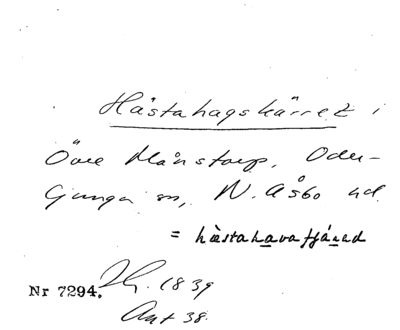 Hästahagskärret i
Övre Månstorp, Oder-
ljunga sn, N. Åsbo hd.
= hästahavafjárad
Nr 7294. 1839
Ant 38.